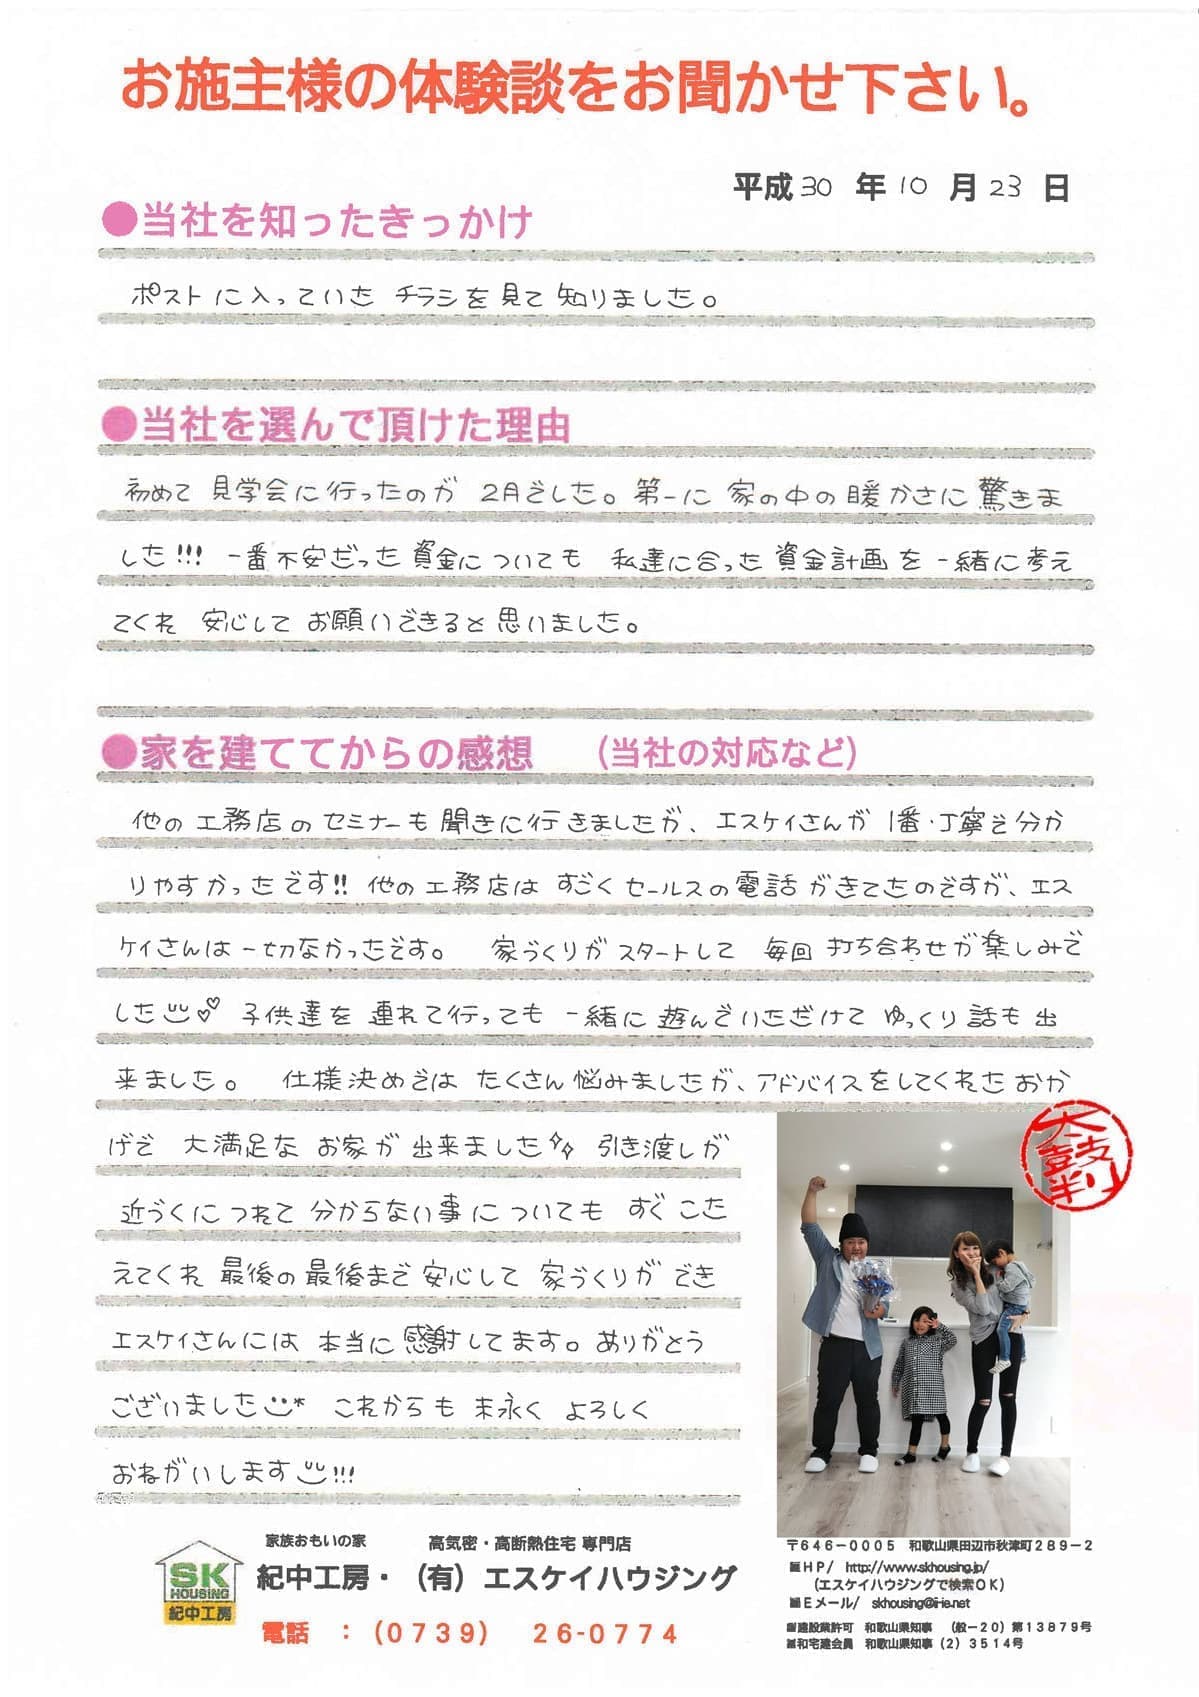 お施主様の体験談をお聞かせ下さい。
平成30年10月23日
●当社を知ったきっかけ
ポストに入っていた チラシを見て知りました。
●当社を選んで頂けた理由
初めて見学会に行ったのが 2月でした。第一に 家の中の暖かさに驚きま
した!!! 一番不安だった資金についても 私達に合った資金計画を一緒に考え
てくれ 安心して お願いできると思いました。
●家を建ててからの感想 (当社の対応など)
他の工務店のセミナーも聞きに行きましたが、エスケイさんが1番・丁寧で分か
りやすかったです!! 他の工務店は すごくセールスの電話がきてたのですが、エス
ケイさんは一切なかったです。 家づくりがスタートして 毎回打ち合わせが楽しみで
した 子供達を連れて行っても 一緒に遊んでいただけて ゆっくり話も出
来ました。 仕様決めでは たくさん悩みましたが、アドバイスをしてくれたおか
げで 大満足な お家が出来ました 引き渡しが
近づくにつれて 分からない事についても すぐこた
えてくれ 最後の最後まで安心して 家づくりができ
エスケイさんには 本当に感謝してます。ありがとう
ございました これからも末永く よろしく
おねがいします!!!
太鼓判
SK
HOUSING
紀中工房
家族おもいの家 高気密・高断熱住宅 専門店
紀中工房・(有)エスケイハウジング
電話 : (0739) 26-0774
〒646-0005 和歌山県田辺市秋津町289-2
■HP/ http://www.skhousing.jp/
(エスケイハウジングで検索OK)
■Eメール/ skhousing@i-ie.net
■建設業許可 和歌山県知事 (般-20)第13879号
■和宅建会員 和歌山県知事(2)3514号